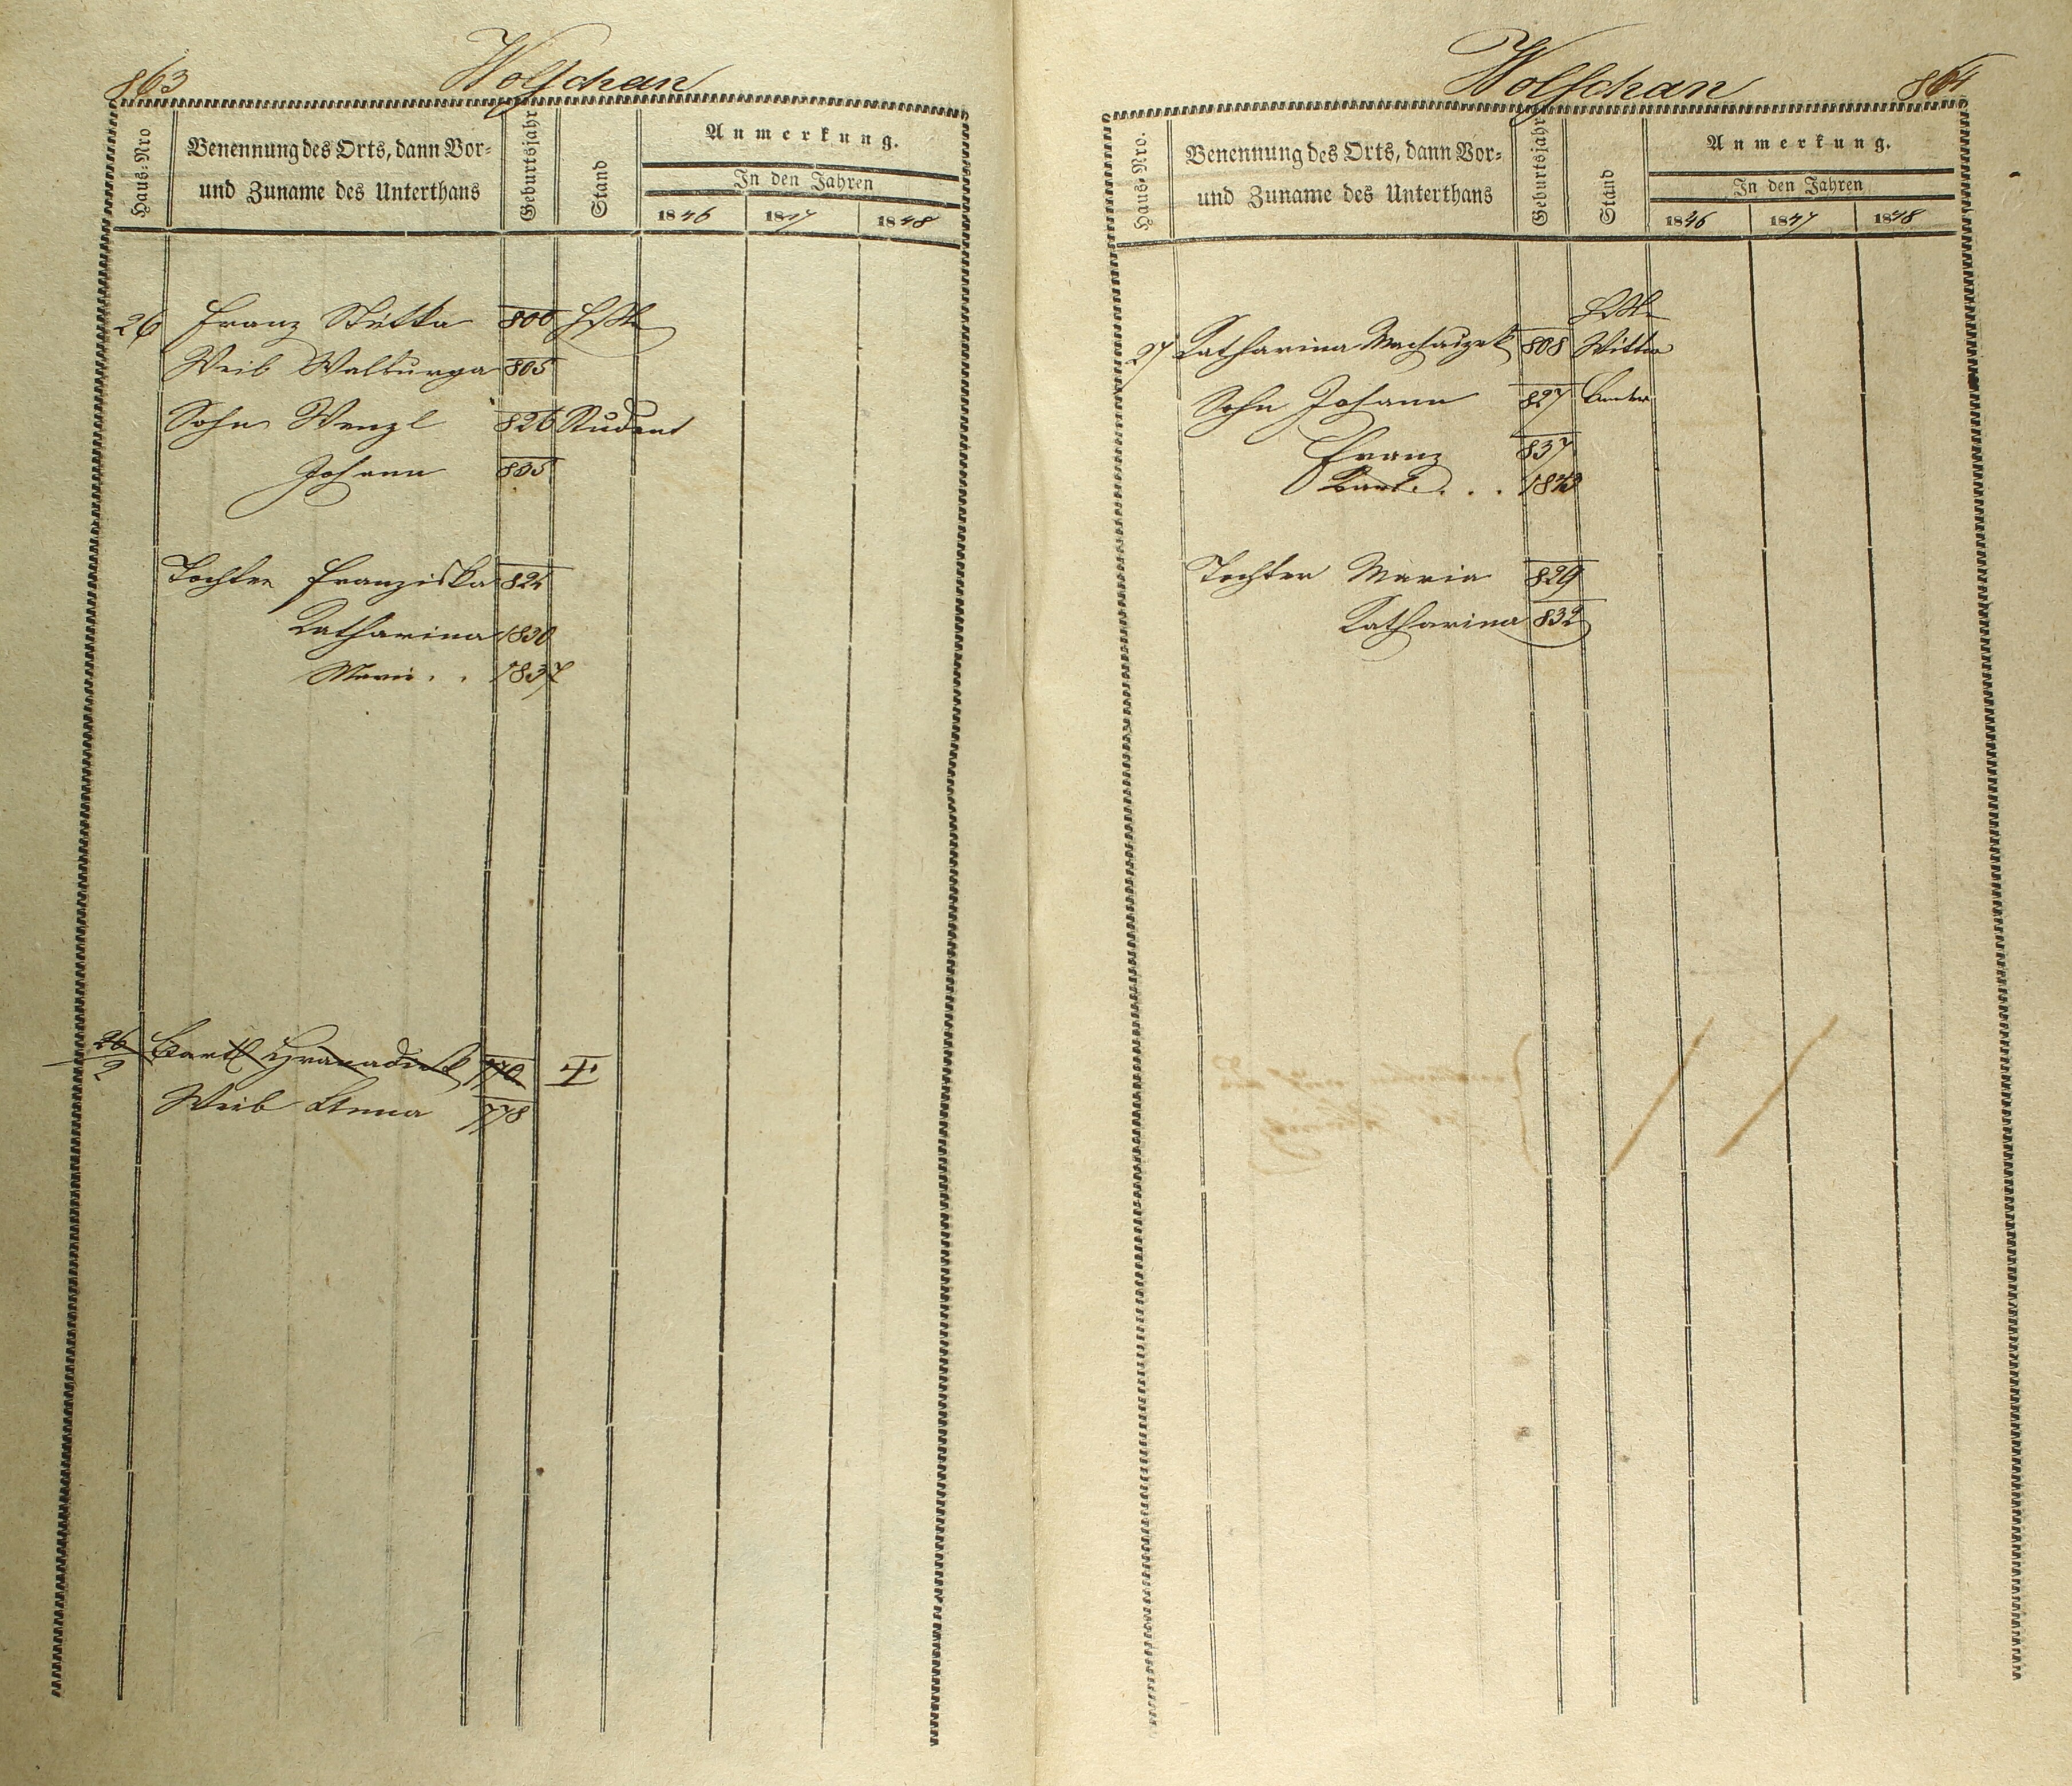 863
Wolschan
Haus-Nro
Benennung des Orts, dann Vor-
und Zuname des Unterthans
Geburtsjahr
Stand
Anmerkung.
In den Jahren
1846 1847 1848
26 Franz Stutka 800
Weib Walburga 805
Sohn Wenzl 826 Student
Johann 835
Tochter Franziska 824
Katharina 1830
Marie . . 1837
26/2 Bartl Hranadirk 770 †
Weib Anna 778
Wolschan
864
Haus-Nro.
Benennung des Orts, dann Vor-
und Zuname des Unterthans
Geburtsjahr
Stand
Anmerkung.
In den Jahren
1846 1847 1848
27 Katharina Machaczek 808 Wittwe
Sohn Johann 827
Franz 837
Bartl . . . 1843
Tochter Maria 829
Katharina 832